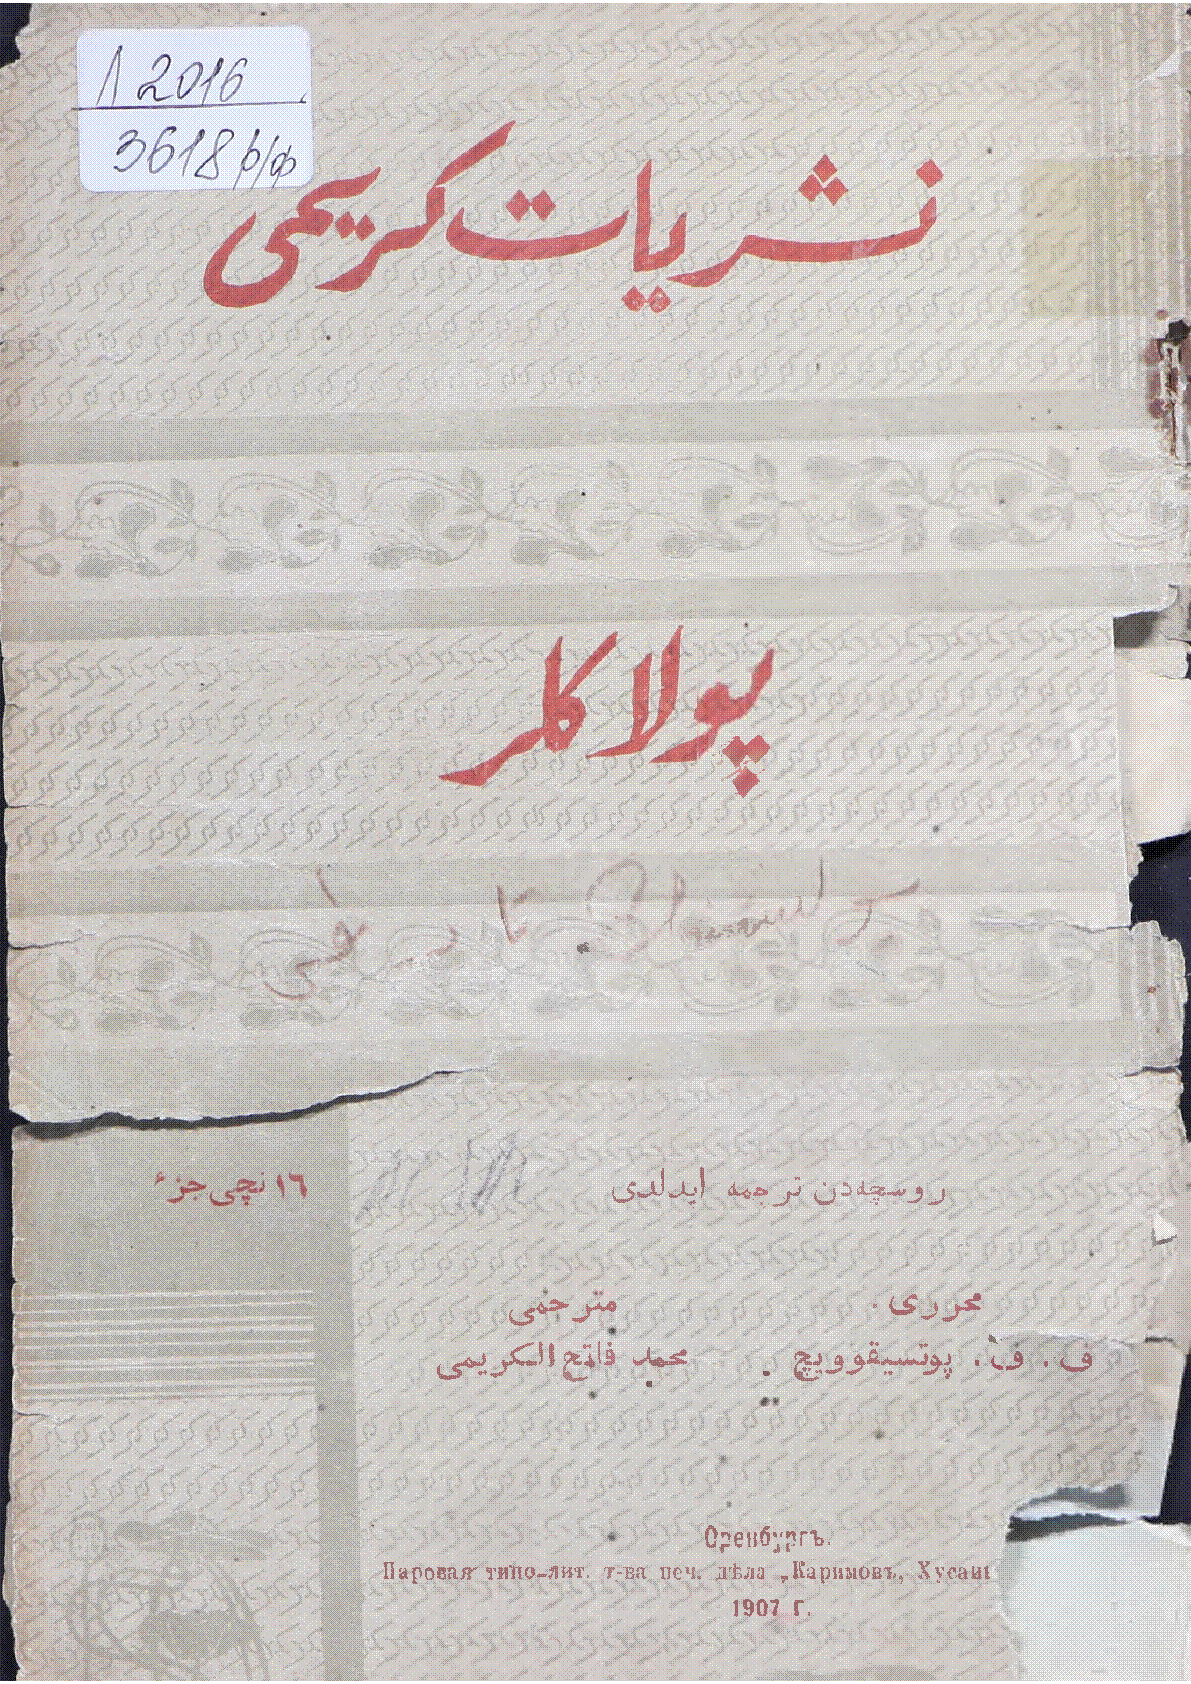 Л 2016
3618 р/ф
نشریات کریمی
پولاکلر
روسچه‌دن ترجمه ایدلدی
١٦ نچی جزء
محرری
مترجمی
ف. ف. پوتسیقوویچ
محمد فاتح الکریمی
Оренбургъ.
Паровая типо-лит. т-ва печ. дѣла „Каримовъ, Хусаин
1907 г.